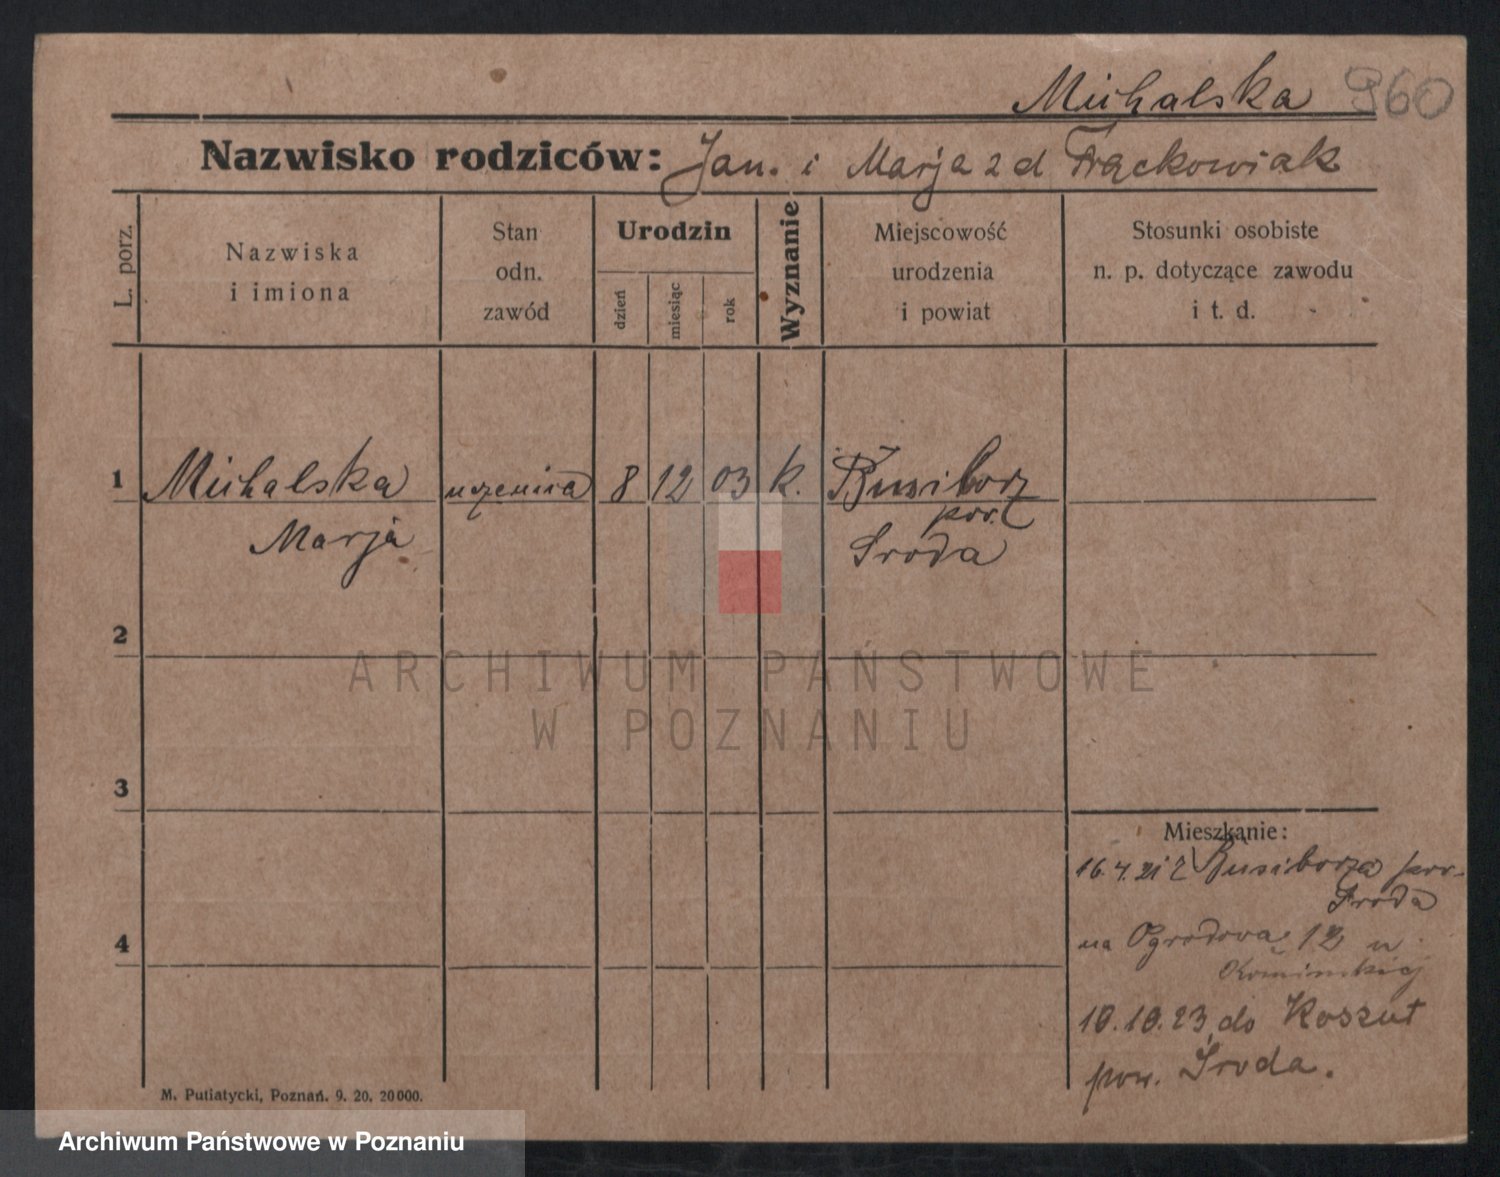 Michalska 960
Nazwisko rodziców: Jan. i Marja z d Frąckowiak
L. porz.
Nazwiska
i imiona
Stan
odn.
zawód
Urodzin
dzień
miesiąc
rok
Wyznanie
Miejscowość
urodzenia
i powiat
Stosunki osobiste
n. p. dotyczące zawodu
i t. d.
1 Michalska uczenica 8 12 03 k. Busiborz
pow.
Marja Sroda
2
ARCHIWUM PAŃSTWOWE
W POZNANIU
3
Mieszkanie:
16.4.21 z Busiborza pow.
Sroda
4
na Ogrodowa 12 u
10.10.23 do Koszut
pow. Środa.
M. Putiatycki, Poznań. 9. 20. 20000.
Archiwum Państwowe w Poznaniu